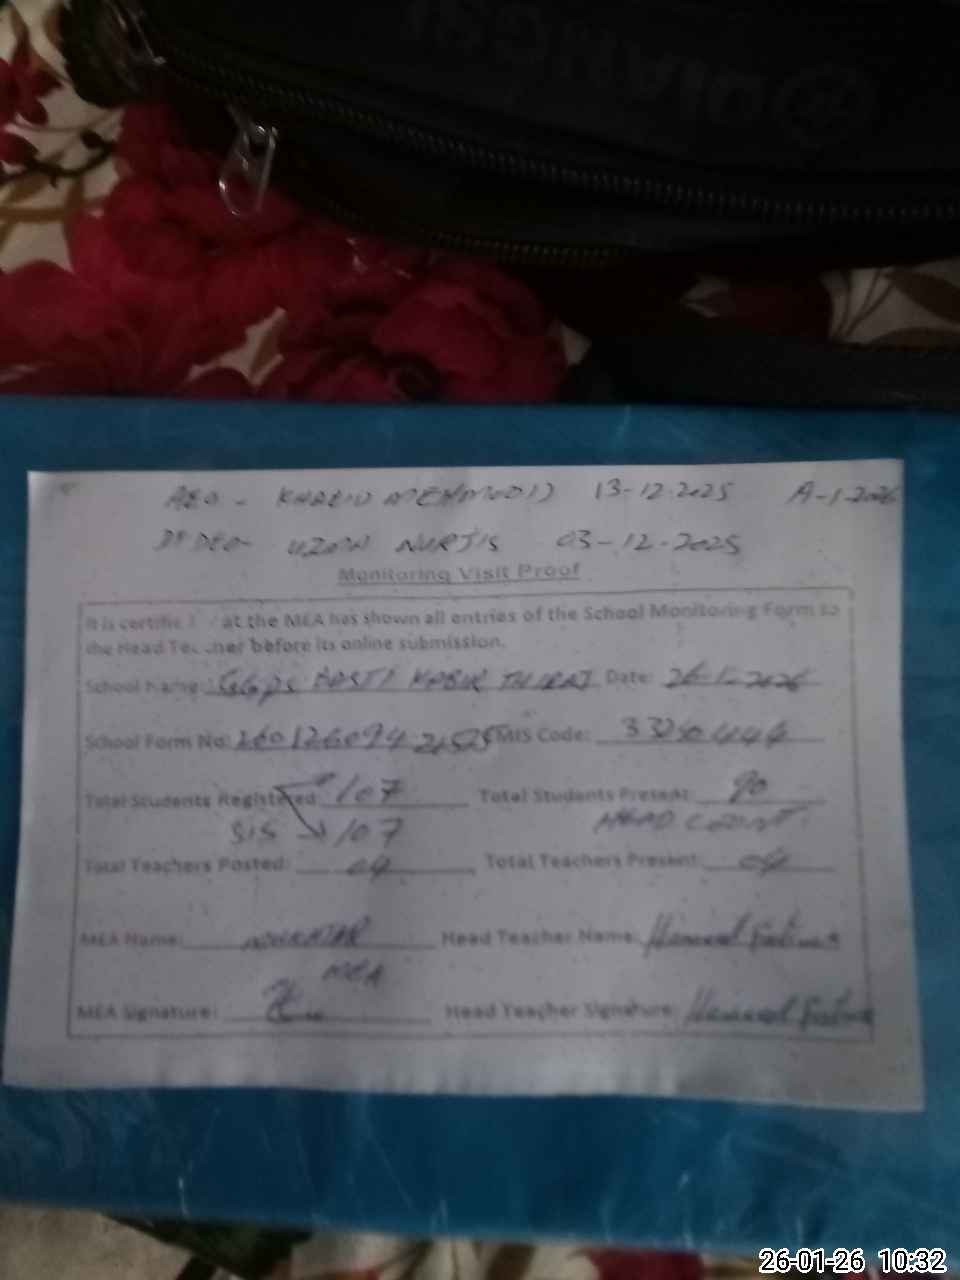 AEO - KHALID MEHMOOD 13-12-2025 A-1-2026
DY DEO- UZMA NURJIS 03-12-2025
Monitoring Visit Proof
It is certifie at the MEA has shown all entries of the School Monitoring Form to
the Head Teacher before its online submission.
School Name: GGPS BASTI KABIR Date: 26-1-2026
School Form No: MIS Code:
Total Students Registered: 107 Total Students Present: 90
SIS → 107 HEAD COUNT.
Total Teachers Posted: 04 Total Teachers Present: 04
MEA Name: Head Teacher Name: Fatima
MEA
MEA Signature: Head Teacher Signature: Fatima
26-01-26 10:32